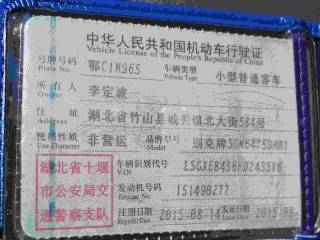 中华人民共和国机动车行驶证
Vehicle License of the People's Republic of China
号牌号码 鄂C1M965 车辆类型 小型普通客车
Plate No. Vehicle Type
所有人 李定波
Owner
住址 湖北省竹山县城关镇北大街584号
Address
使用性质 非营运 品牌型号 别克牌
Use Character Model
湖北省十堰市公安局交通警察支队
车辆识别代号
VIN
发动机号码 151490277
Engine No.
注册日期 2015-08-14 发证日期 2015-08-
Register Date Issue Date